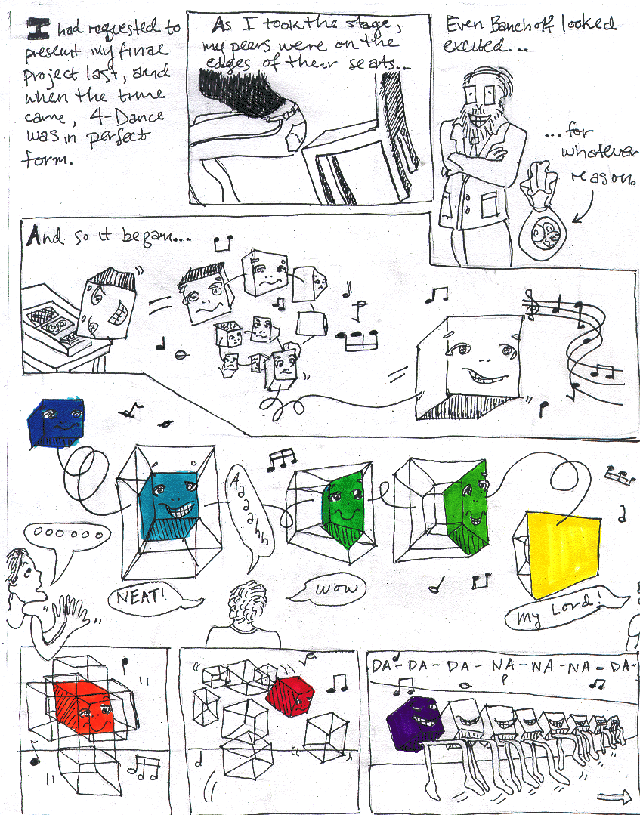 I had requested to
present my final
project last, and
when the time
came, 4-Dance
was in perfect
form.
As I took the stage,
my peers were on the
edges of their seats...
Even Banchoff looked
excited...
...for
whatever
reason.
And so it began...
oooooo
NEAT!
Aaaahh
WOW
My Lord!
DA-DA-DA-NA-NA-NA-DA-